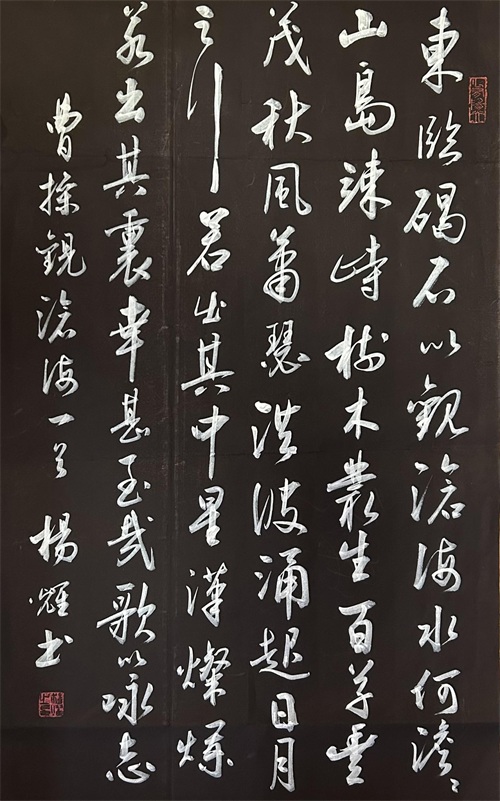 東臨碣石以觀滄海水何澹〻
山島竦峙樹木叢生百草豊
茂秋風蕭瑟洪波涌起日月
之行若出其中星漢燦爛
若出其裏幸甚至哉歌以咏志
曹操觀滄海一首 楊耀书